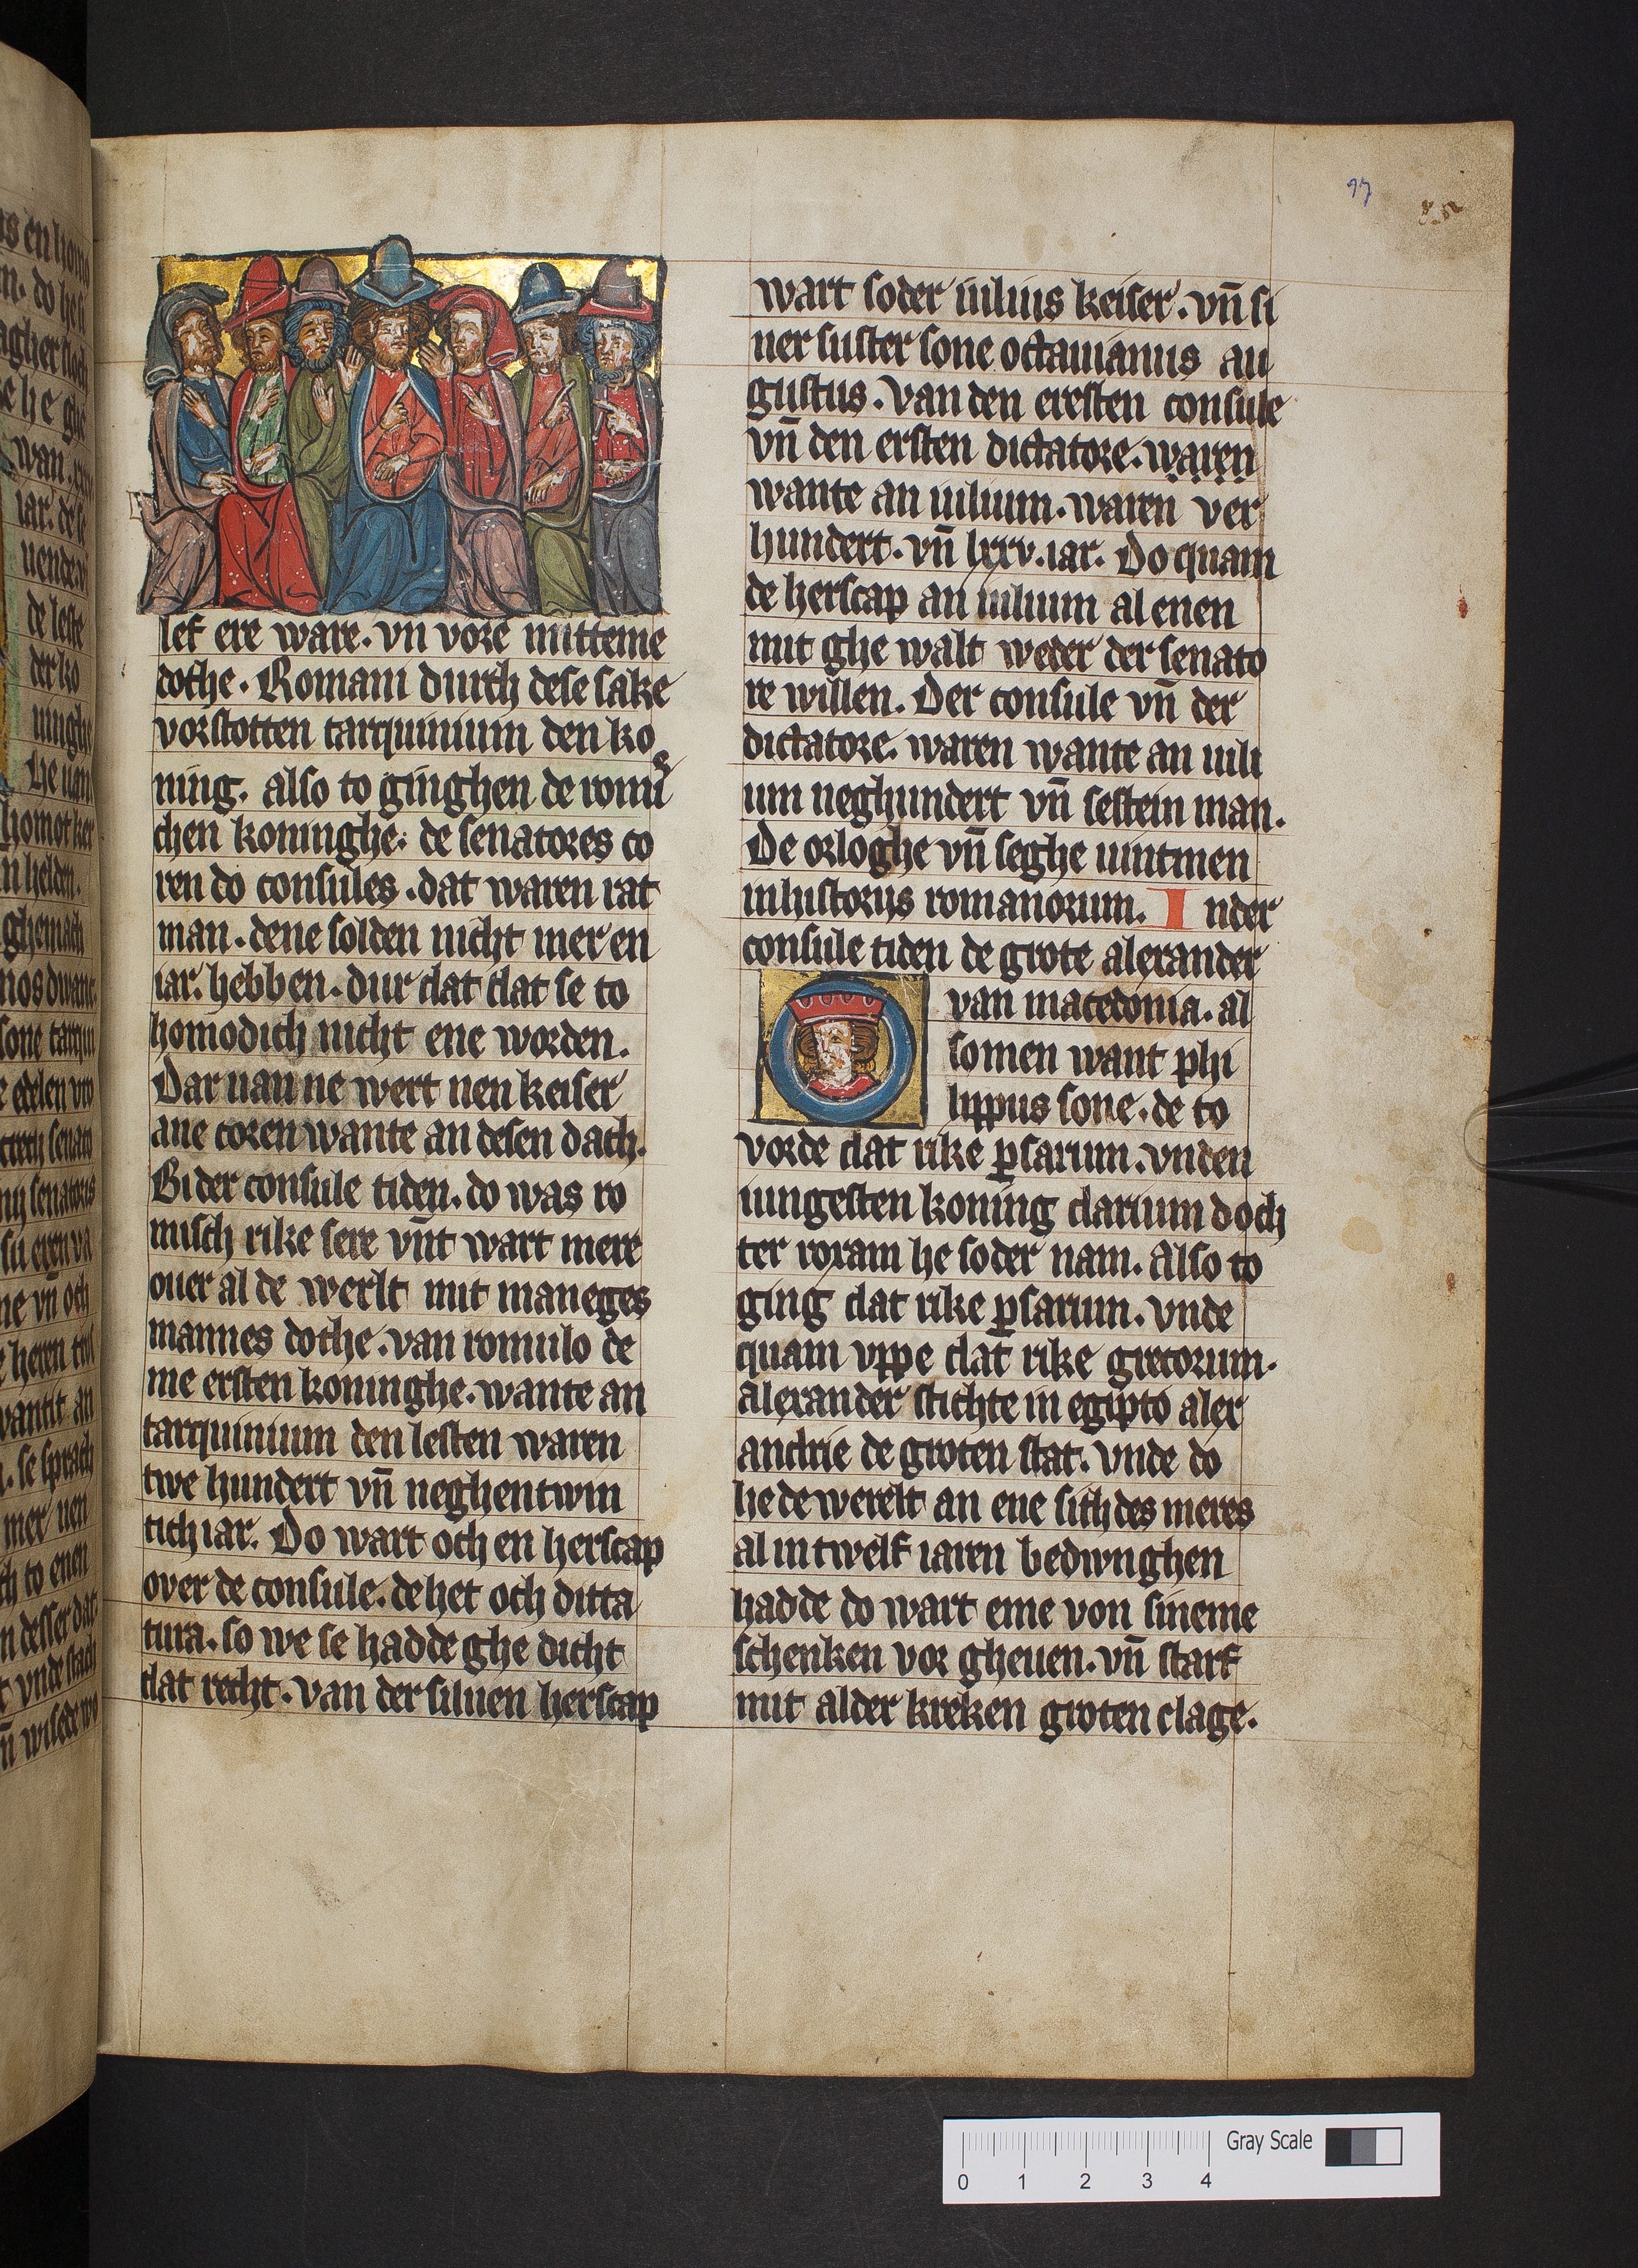 17
lef ere ware. vn̄ vore mitteme
dothe. Romani durch dese sake
vorstotten tarquinium den ko
ning. also to ginghen de romis
chen koninghe. de senatores co
ren do consules. dat waren rat
man. dene solden nicht mer en
iar. hebben. dur dat dat se to
homodich nicht ene worden.
Dar uan ne wert nen keiser
ane coren wante an desen dach.
Bi der consule tiden. do was ro
misch rike sere vn̄t wart mere
ouer al de werlt mit maneges
mannes dothe. van romulo de
me ersten koninghe. wante an
tarquinium den lesten waren
twe hundert vn̄ neghentwin
tich iar. Do wart och en herscap
over de consule. de het och ditta
tura. so we se hadde ghe dicht
dat recht. van der siluen herscap
wart soder iulius keiser. vn̄ si
ner suster sone octauianus au
gustus. van den eresten consule
vn̄ den ersten dictatore. waren
wante an iulium. waren ver
hundert. vn̄ lxxv. iar. Do quam
de herscap an iulium al enen
mit ghe walt weder der senato
re willen. Der consule vn̄ der
dictatore. waren wante an iuli
um neghundert vn̄ sestein man.
De orloghe vn̄ seghe uintmen
in historiis romanorum. In der
consule tiden de grote alexander
van macedonia. al
somen want phi
lippus sone. de to
vorde dat rike ꝑsarum. vnden
iungesten koning darium doch
ter roxam he soder nam. Also to
ging dat rike ꝑsarum. vnde
quam vppe dat rike grecorum.
alexander stichte in egipto alex
andrie de groten stat. vnde do
he de werelt an ene sich des meres
al in twelf iaren bedwnghen
hadde do wart eme von sineme
schenken vor gheuen. vn̄ starf
mit alder kreken groten clage.
0 1 2 3 4 Gray Scale